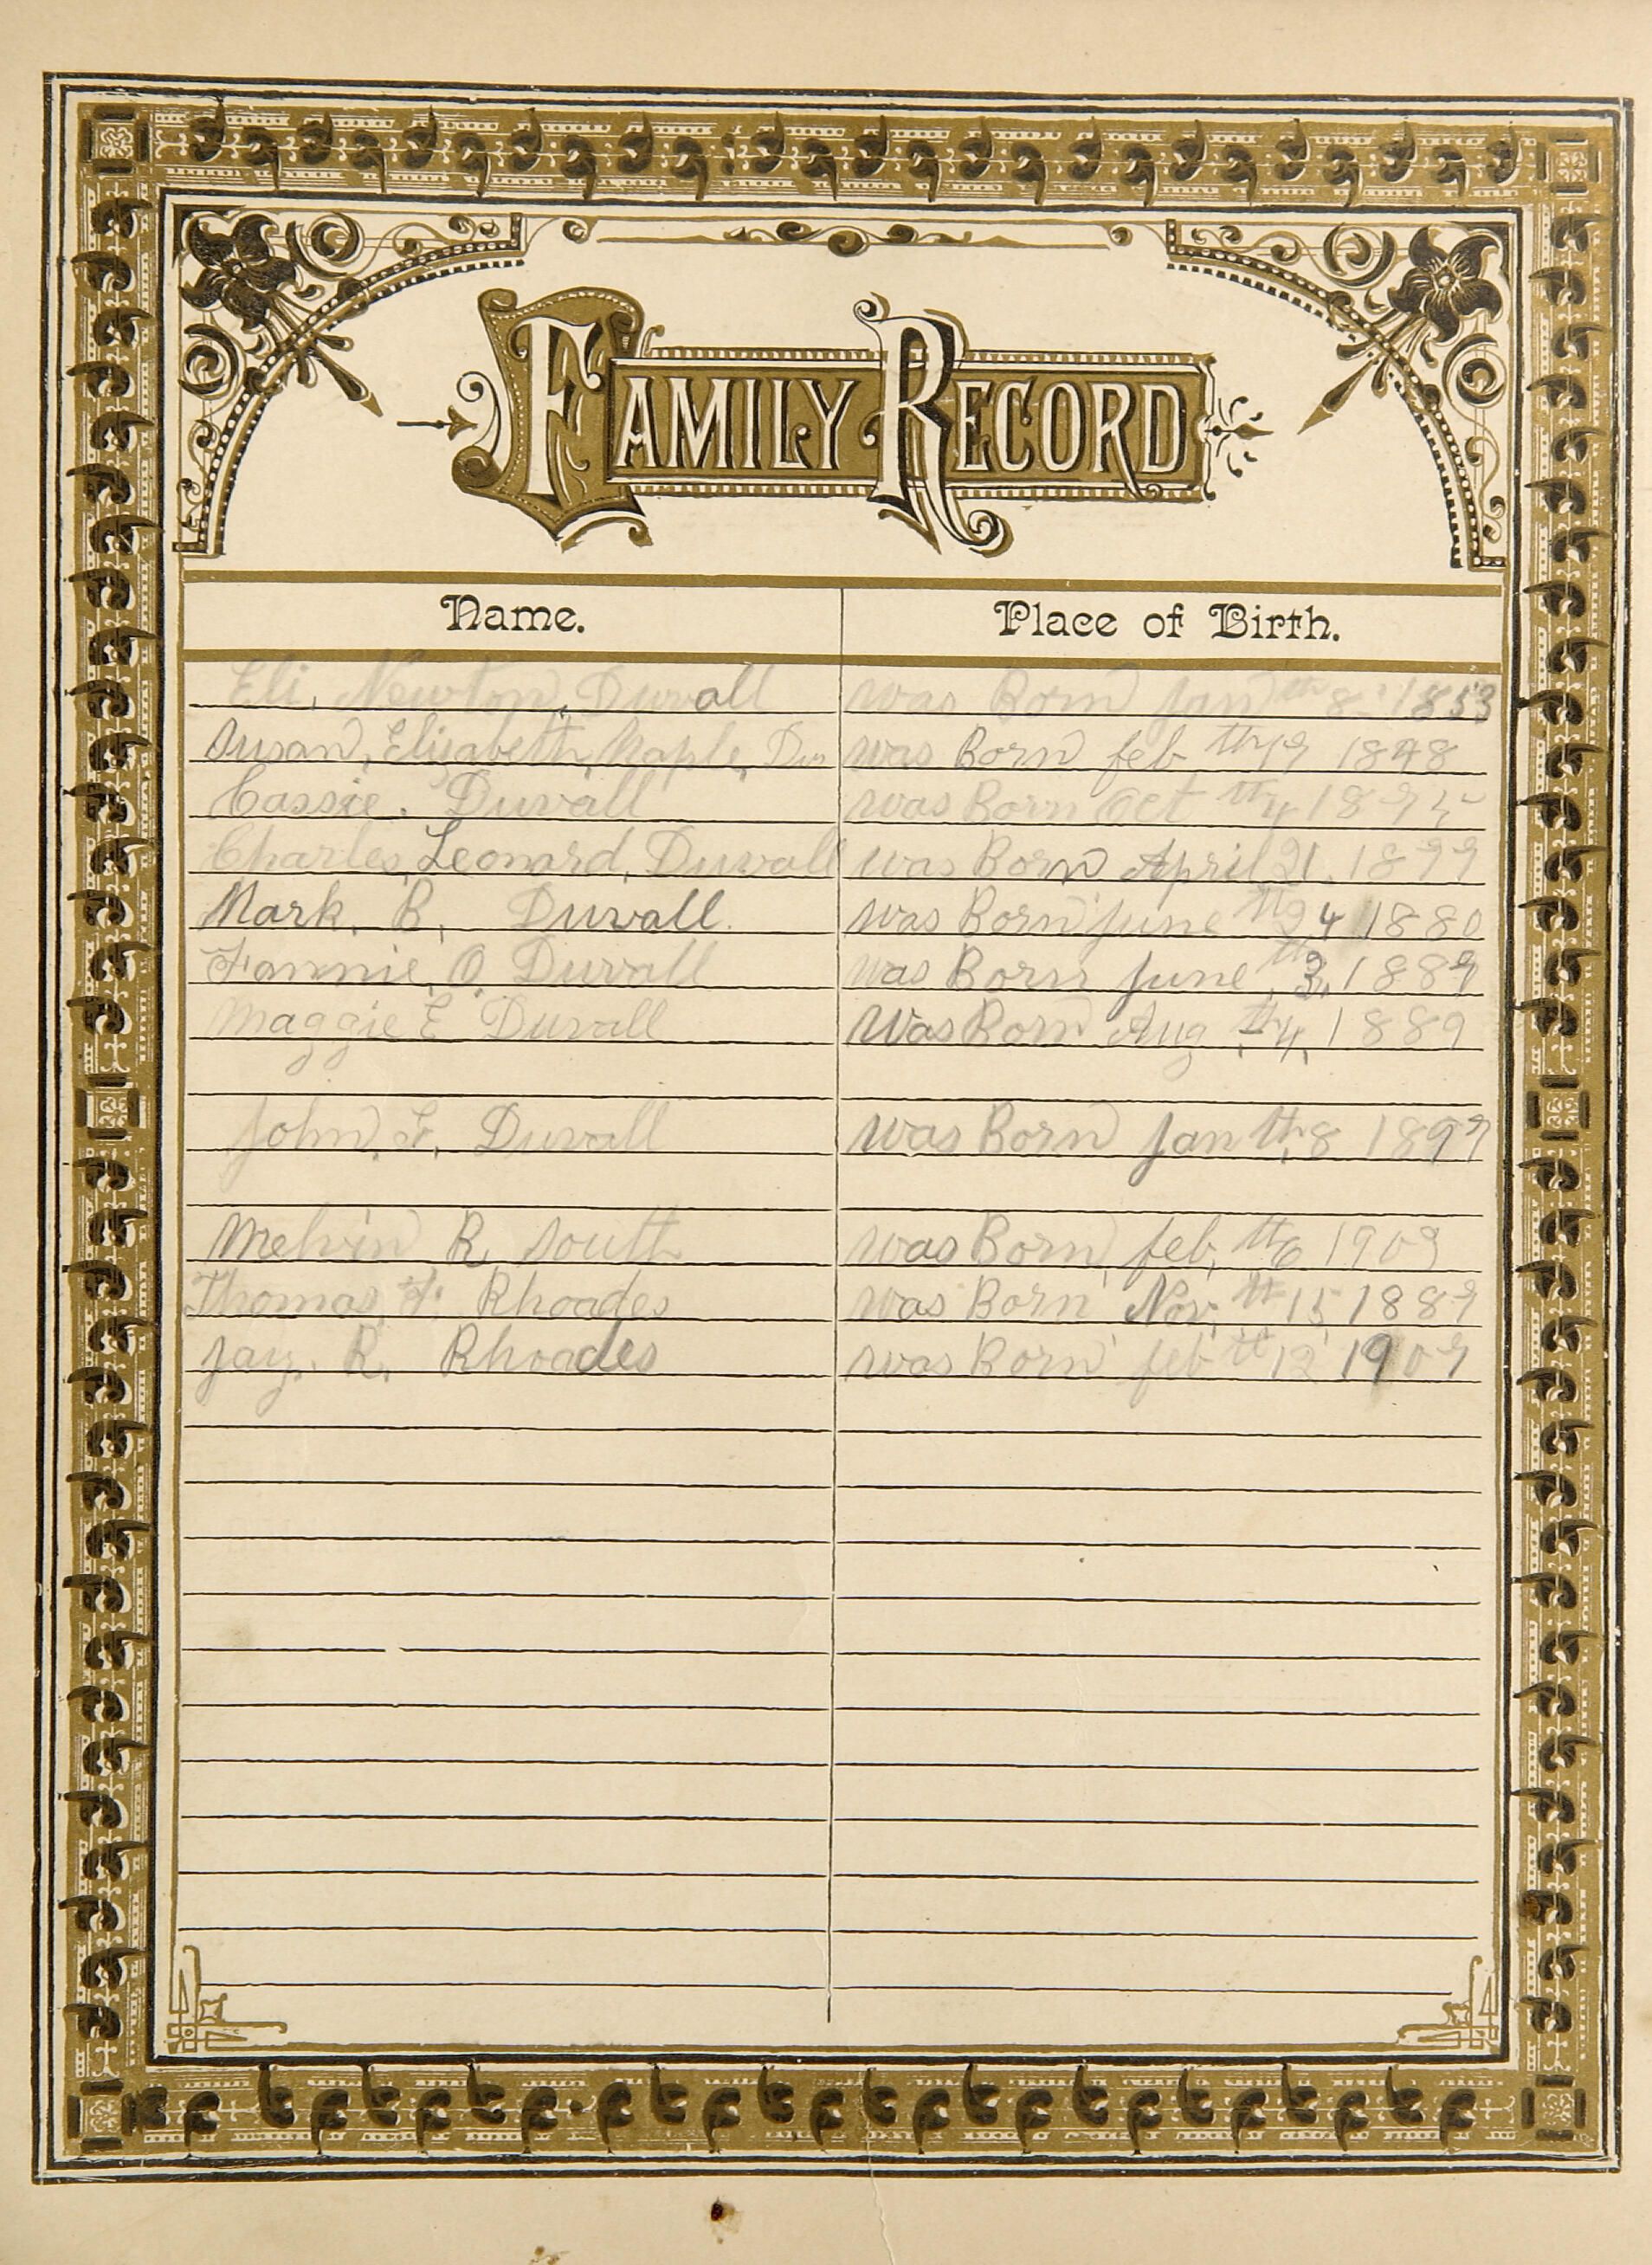 FAMILY RECORD
Name. Place of Birth.
Eli, Newton, Duvall was Born Jan th 8 1853
Susan, Elizabeth, Maple, Duv was Born feb th 17 1848
Cassie. Duvall was Born Oct th 4 1875
Charles, Leonard, Duvall was Born April 21. 1877
Mark. B, Duvall. was Born June th 24 1880
Fannie, O. Duvall was Born June th 3, 1887
Maggie E Duvall was Born Aug th 4, 1889
John, F, Duvall was Born Jan th 8 1897
Melvin R South was Born, feb, th 6 1909
Thomas, F. Rhoades was Born Nov, th 15 1887
Jay. R. Rhoades was Born feb th 12 1907